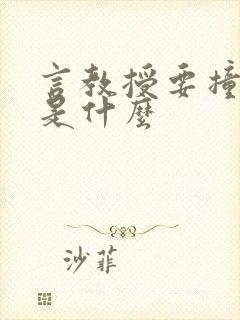 言教授要撞
是什麼
沙菲